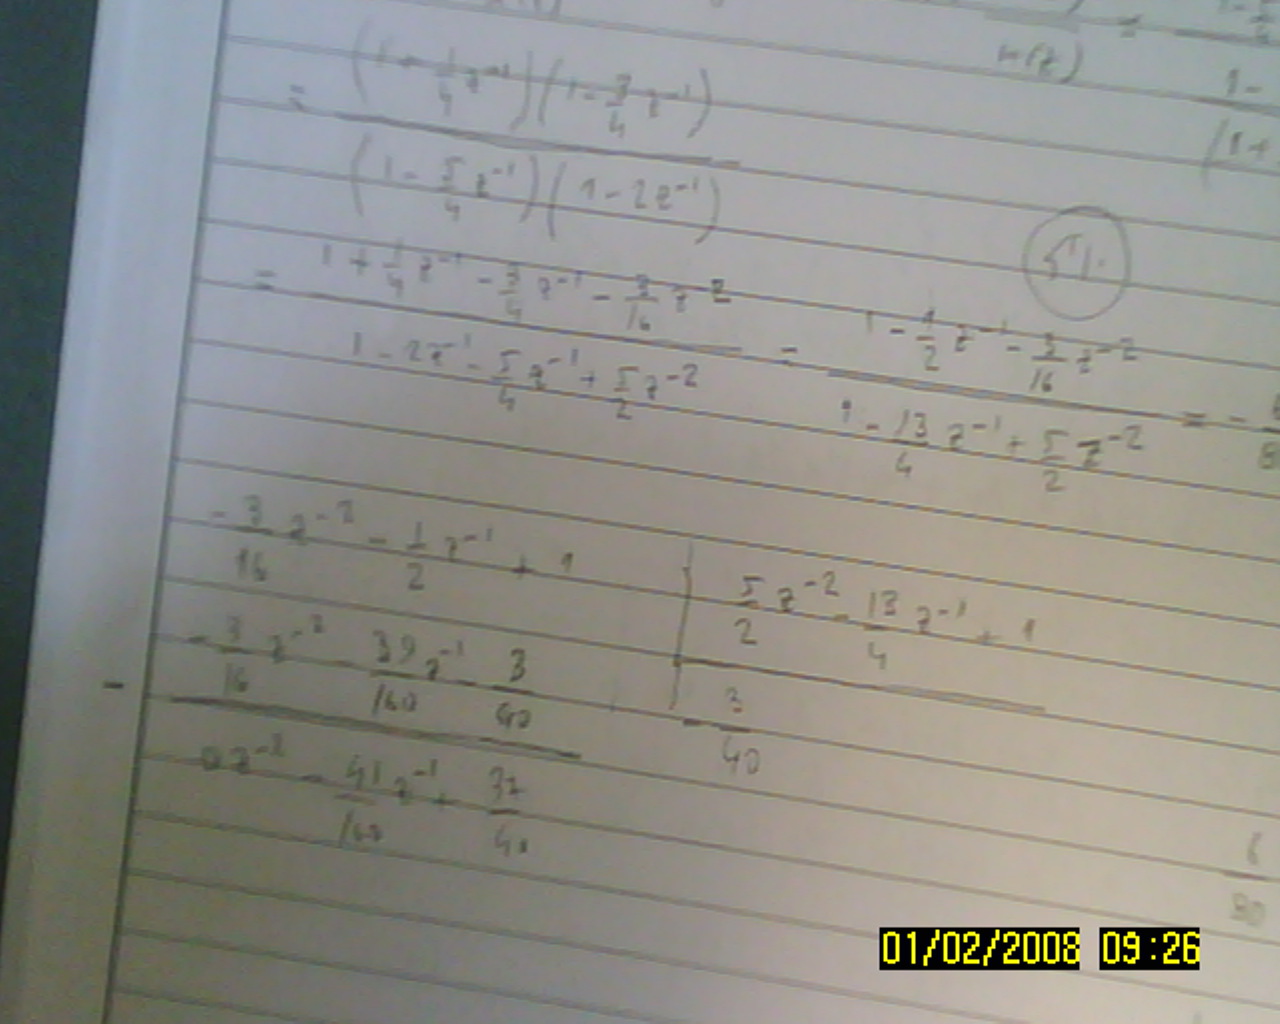 H(z)
= (1 + 1/4 z^-1)(1 - 3/4 z^-1) / (1 - 5/4 z^-1)(1 - 2z^-1)
= 1 + 1/4 z^-1 - 3/4 z^-1 - 3/16 z^-2 / 1 - 2z^-1 - 5/4 z^-1 + 5/2 z^-2 = 1 - 1/2 z^-1 - 3/16 z^-2 / 1 - 13/4 z^-1 + 5/2 z^-2 = -
- 3/16 z^-2 - 1/2 z^-1 + 1 | 5/2 z^-2 - 13/4 z^-1 + 1
- 3/16 z^-2 39/160 z^-1 - 3/40 | - 3/40
0z^-2 - 41/160 z^-1 + 37/40
6/80
01/02/2008 09:26